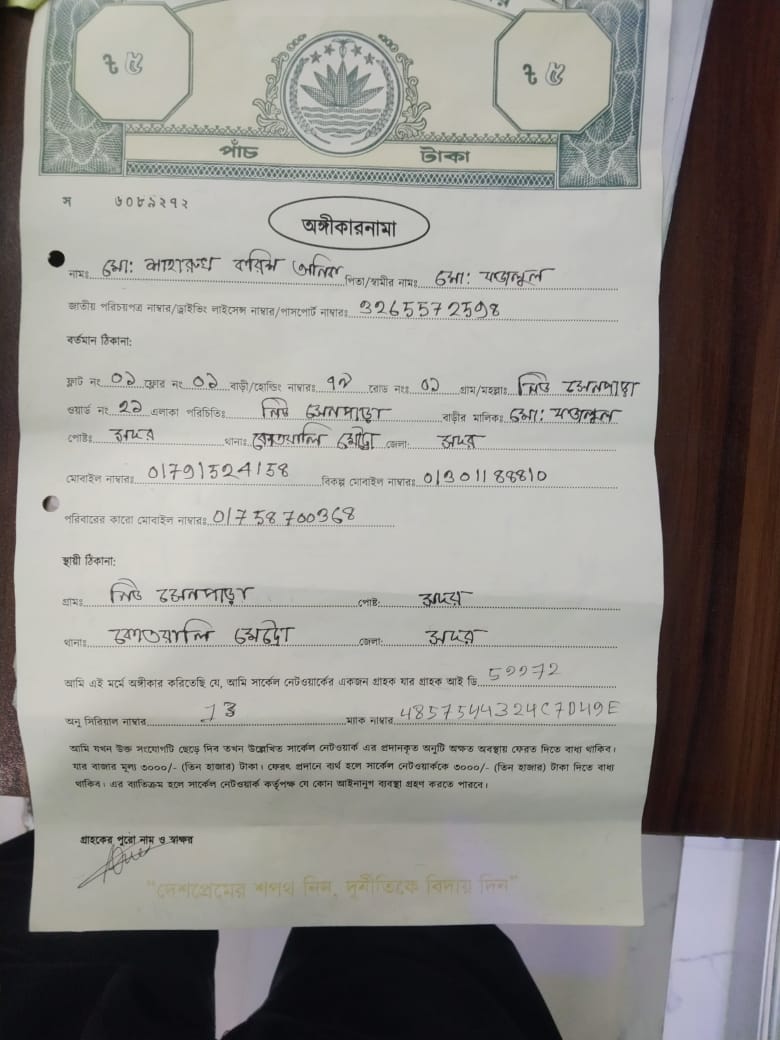 ৳ ৫ ৳ ৫
পাঁচ টাকা
স ৬০৮৯২৭২
অঙ্গীকারনামা
নামঃ মো: পিতা/স্বামীর নামঃ মো:
জাতীয় পরিচয়পত্র নাম্বার/ড্রাইভিং লাইসেন্স নাম্বার/পাসপোর্ট নাম্বারঃ 3265572598
বর্তমান ঠিকানা:
ফ্লাট নং ০১ ফ্লোর নং ০১ বাড়ী/হোল্ডিং নাম্বারঃ রোড নংঃ ০১ গ্রাম/মহল্লাঃ নিউ সেনপাড়া
ওয়ার্ড নং 21 এলাকা পরিচিতিঃ নিউ সেনপাড়া বাড়ীর মালিকঃ মো:
পোষ্টঃ সদর থানাঃ কোতয়ালি মেট্রো জেলা: সদর
মোবাইল নাম্বারঃ 01791524158 বিকল্প মোবাইল নাম্বারঃ
পরিবারের কারো মোবাইল নাম্বারঃ 01758700368
স্থায়ী ঠিকানা:
গ্রামঃ নিউ সেনপাড়া পোষ্ট: সদর
থানাঃ কোতয়ালি মেট্রো জেলা: সদর
আমি এই মর্মে অঙ্গীকার করিতেছি যে, আমি সার্কেল নেটওয়ার্কের একজন গ্রাহক যার গ্রাহক আই ডি
অনু সিরিয়াল নাম্বার 13 ম্যাক নাম্বার 4857544324C7D49E
আমি যখন উক্ত সংযোগটি ছেড়ে দিব তখন উল্লেখিত সার্কেল নেটওয়ার্ক এর প্রদানকৃত অনুটি অক্ষত অবস্থায় ফেরত দিতে বাধ্য থাকিব।
যার বাজার মূল্য ৩০০০/- (তিন হাজার) টাকা। ফেরৎ প্রদানে ব্যর্থ হলে সার্কেল নেটওয়ার্ককে ৩০০০/- (তিন হাজার) টাকা দিতে বাধ্য
থাকিব। এর ব্যতিক্রম হলে সার্কেল নেটওয়ার্ক কর্তৃপক্ষ যে কোন আইনানুগ ব্যবস্থা গ্রহণ করতে পারবে।
গ্রাহকের পুরো নাম ও স্বাক্ষর
"দেশপ্রেমের শপথ নিন, দুর্নীতিকে বিদায় দিন"